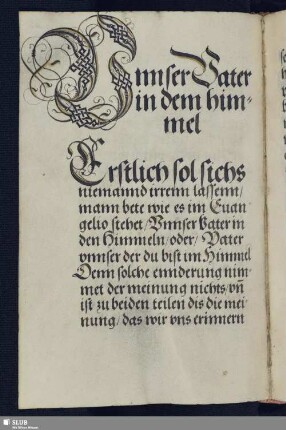 Vnnser Vater
in dem him-
mel
Erstlich sol sichs
niemannd irrenn lassenn/
mann bete wie es im Euan
gelio stehet/ Vnnser Vater in
den Himmeln/ oder/ Vater
vnnser der du bist im Himmel
Denn solche ennderung nim-
met der meinung nichts/ vn̄
ist zu beiden teilen dis die mei
nung/ das wir vns erinnern
SLUB